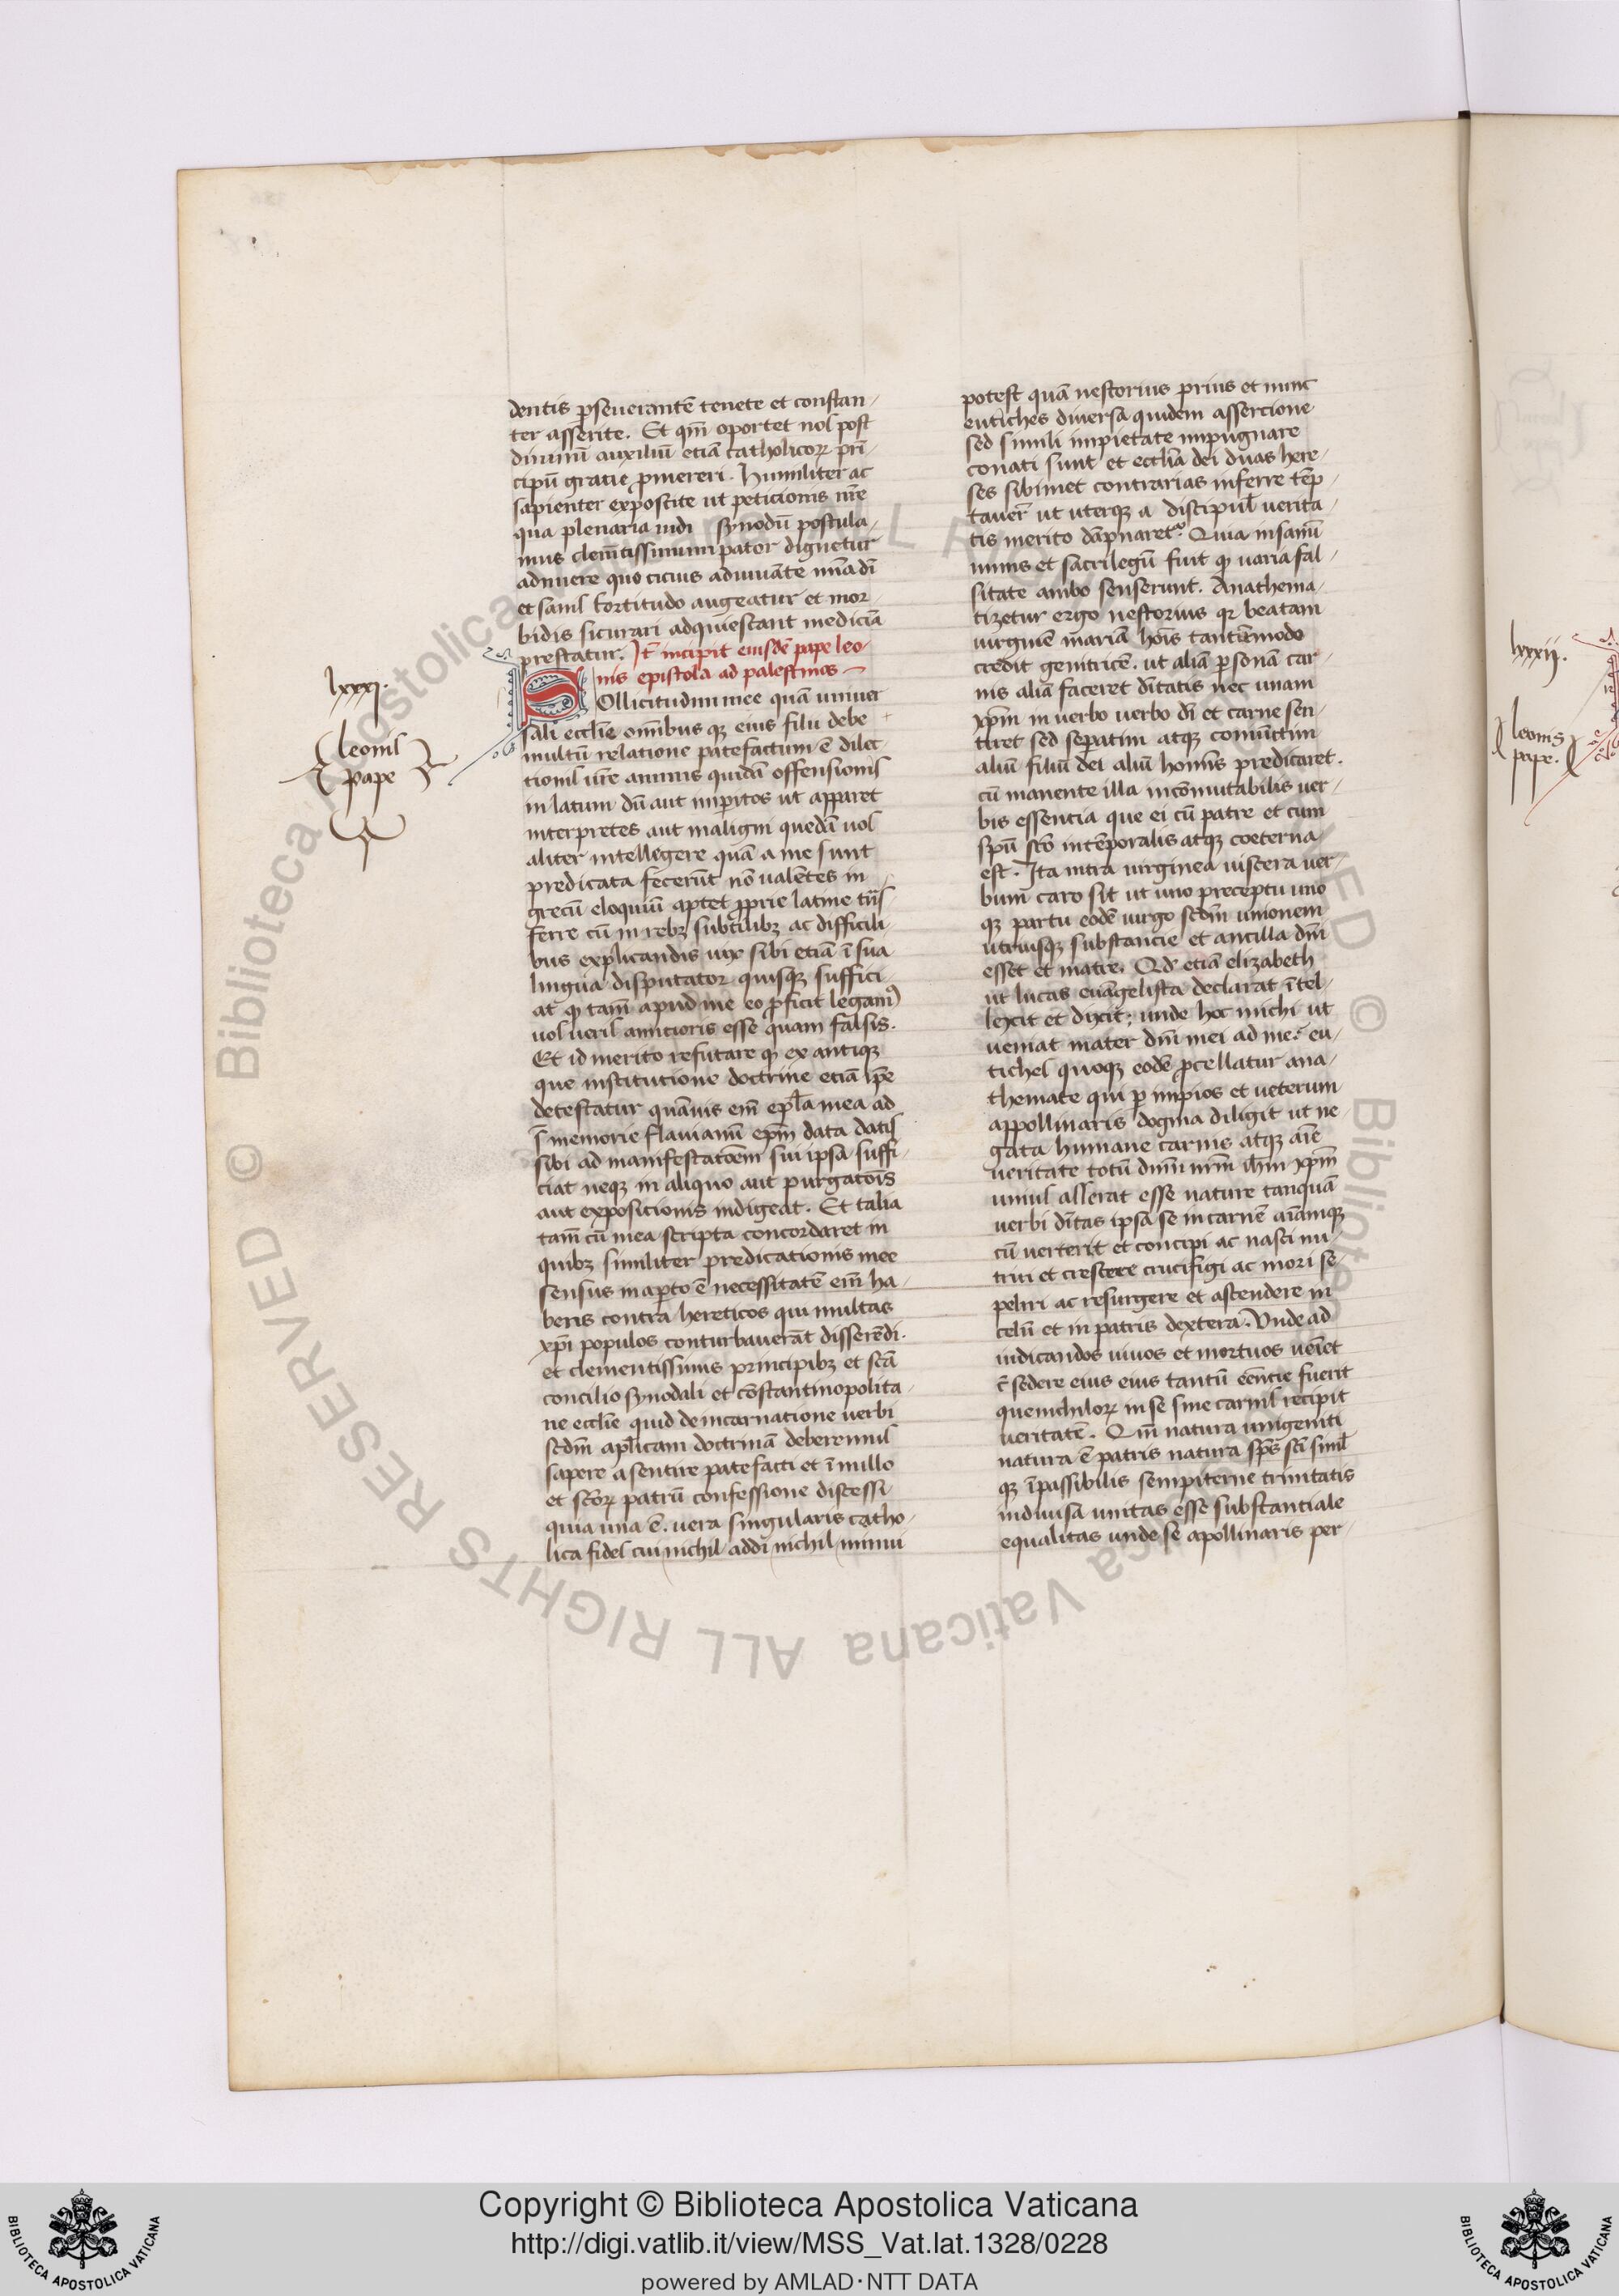 dentis ꝑseuerantē tenete et constan-
ter asserite. Et qm̄ oportet nos post
diuinū auxiliū etiā catholicoꝝ pri-
cipū gratie ꝓmereri. Humiliter ac
sapienter exposcite ut peticionis nr̄e
qua plenaria indi synodū postula-
mus clemētissimum ꝑator dignetur
adnuere quo cicius adiuuāte mīa dī
et sanis fortitudo augeatur et mor-
bidis sicurari adquiescant mediciā
prestatur. It̄ incipit eiusdē pape leo-
nis epistola ad palestinos
Sollicitudini mee quā uniuer
sali eccl̄ie om̄ibus qꝫ eius filii debe
multū relatione patefactum ē dilec-
tionis ur̄e animis quidā offensionis
in latum dū aut imperitos ut apparet
interpretes aut maligni quedā uos
aliter intellegere quā a me sunt
predicata fecerūt nō ualētes in
grecū eloquiū aptet ꝓprie latine trās
ferre cū in rebꝫ subtilibꝫ ac difficili
bus explicandis uix sibi etiā ī sua
lingua disputator quisqꝫ suffici-
at qꝫ tam̄ apud me eo ꝓficit
uos ueris amicioris esse quam falsis.
Et id merito refutare qꝫ ex antiqꝫ
que institucione doctrine etiā ip̄e
detestatur quāuis em̄ epl̄a mea ad
s̄ memorie flauianū ep̄m data datis
sibi ad manifestatōem sui ipsa suffi-
ciat neqꝫ in aliquo aut purgatōis
aut expositionis indigeat. Et talia
tam̄ cū mea scripta concordaret in
quibꝫ similiter predicationis mee
sensus in aperto ē necessitatē em̄ ha-
beris contra hereticos qui multas
xp̄i populos conturbauerāt disserēdi.
et clementissimis principibꝫ et scā
concilio synodali et cōstantinopolita-
ne eccl̄ie quid de incarnatione uerbi
scdm̄ apl̄icam doctrinā deberemus
sapere a sentire patefacti et ī nullo
et scōꝝ patrū confessione discessi
quia una ē. uera singularis catho-
lica fides cui nichil addi nichil minui
potest quā nestorius prius et nunc
eutiches diuersa quidem assercione
sed simili impietate impugnare
conati sunt et eccl̄iā dei duas here-
ses sibimet contrarias inferre tēp-
tauer̄ ut uterqꝫ a discipul̄ uerita-
tis merito dāpnaret̄. Quia insanū
nimis et sacrilegū fuit qꝫ uaria fal-
sitate ambo senserunt. Anathema-
tizetur ergo nestorius qr beatam
uirginē mariā hōis tantūmodo
credit genitricē. ut aliā ꝑsonā car-
nis aliā faceret dītatis nec unam
xp̄m in uerbo uerbo dī et carne sen-
tiret sed seꝑatim atqꝫ coniūctim
aliū filiū dei aliū hominis predicaret.
cū manente illa incōmutabilis uer-
bis essentia que ei cū patre et cum
spū scō intēporalis atqꝫ coeterna
est. Ita intra uirginea uiscera uer-
bum caro sit ut uno preceptu uno
qꝫ partu eodē uirgo scdm̄ unionem
utriusqꝫ substancie et ancilla dn̄i
esset et matre. Qd etiā elizabeth
ut lucas euāgelista declarat ītel-
lexit et dixit; unde hoc michi ut
ueniat mater dn̄i mei ad me? eu-
tiches quoqꝫ eodē ꝓcellatur ana-
themate qui ꝑ impios et ueterum
appollinaris dogma diligit ut ne-
gata humane carnis atqꝫ aīe
ueritate totū dnm̄ nr̄m ihm̄ xp̄m
unius asserat esse nature tanquā
uerbi dītas ipsa se in carnē aīamqꝫ
cū uerterit et concipi ac nasci nu-
triri et crescere crucifigi ac mori se
peliri ac resurgere et ascendere in
celū et in patris dextera. Unde ad
iudicandos uiuos et mortuos ueīet
sedere eius eius tantū eēntie fuerit
que nichiloꝝ in se sine carnis recipit
ueritatē. Qm̄ natura unigeniti
natura ē patris natura sps̄ scī simil
qꝫ īpassibilis sempiterne trinitatis
indiuisa unitas esse substantiale
equalitas unde se apollinaris per-
lxxxi.
leonis
pape
lxxxij.
leonis
pape.
© Biblioteca Apostolica Vaticana ALL RIGHTS RESERVED
Copyright © Biblioteca Apostolica Vaticana
http://digi.vatlib.it/view/MSS_Vat.lat.1328/0228
powered by AMLAD·NTT DATA
BIBLIOTECA APOSTOLICA VATICANA
BIBLIOTECA APOSTOLICA VATICANA